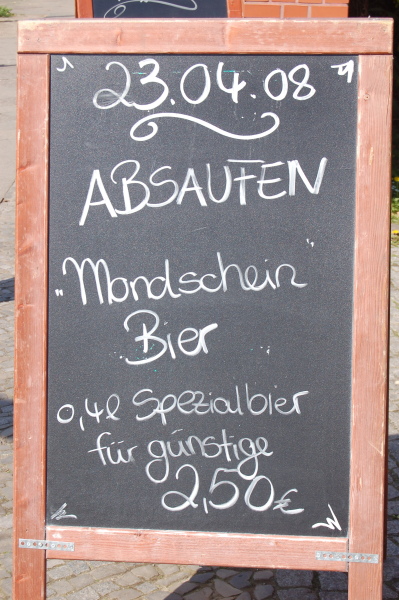 23.04.08
ABSAUFEN
„Mondschein"
Bier
0,4l Spezialbier
für günstige
2,50€